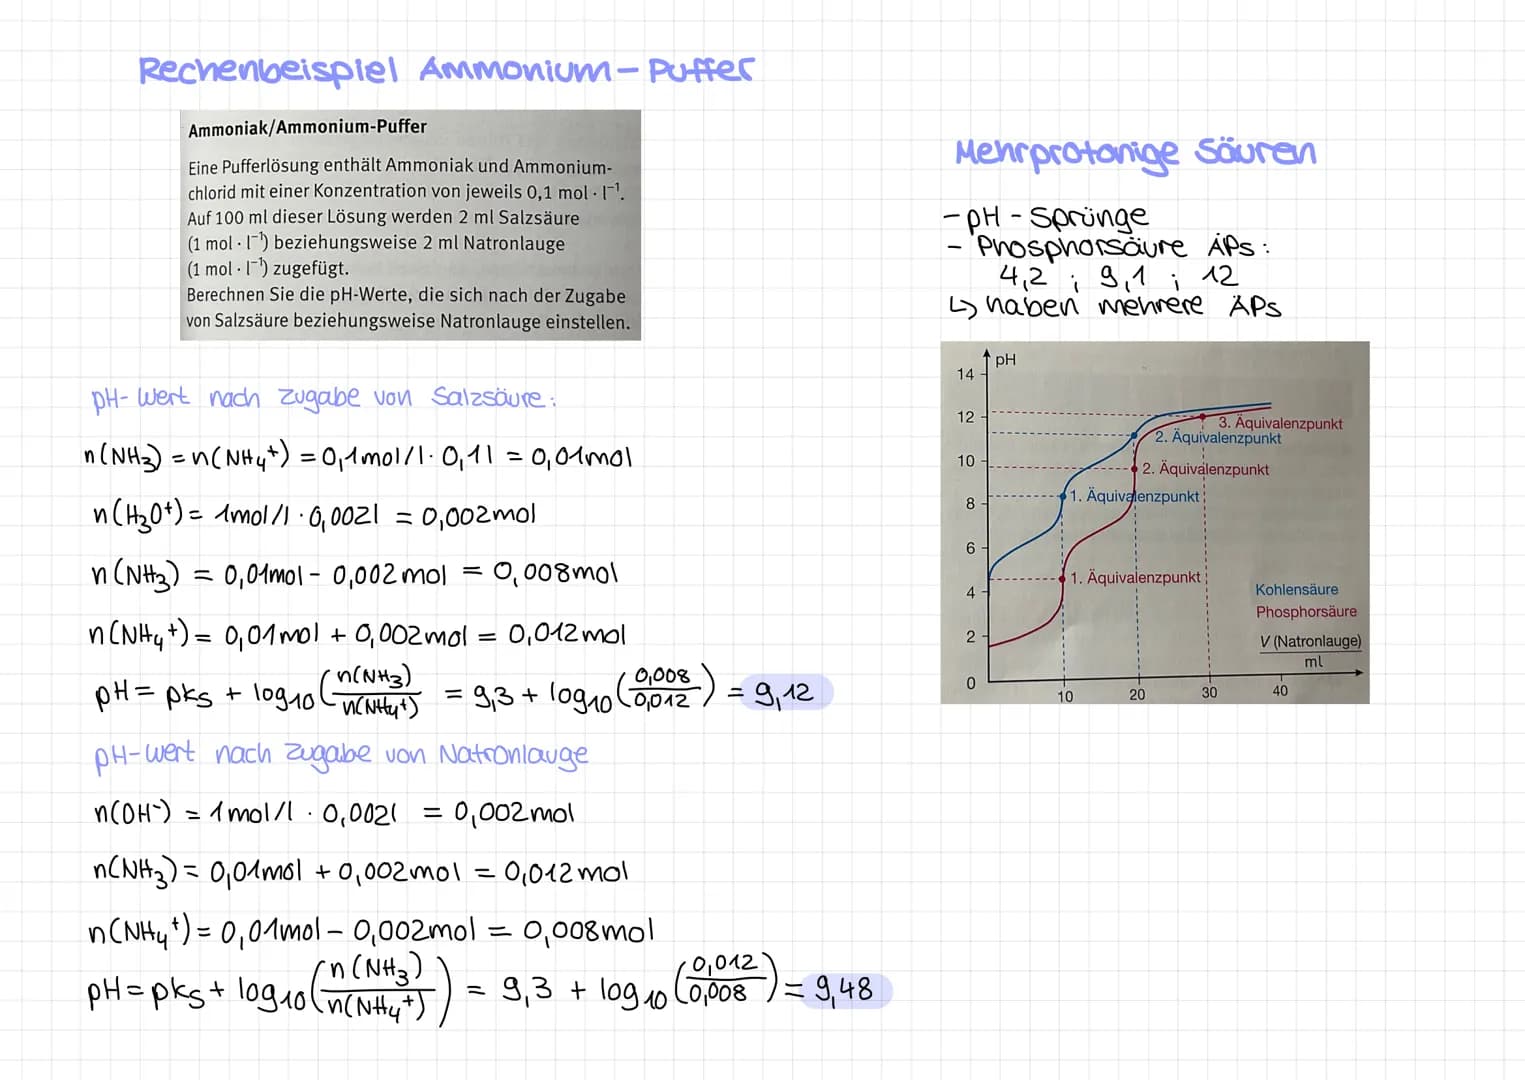 Rechenbeispiel Ammonium-Puffer
Ammoniak/Ammonium-Puffer
Eine Pufferlösung enthält Ammoniak und Ammonium-
chlorid mit einer Konzentration von jeweils 0,1 mol · l⁻¹.
Auf 100 ml dieser Lösung werden 2 ml Salzsäure
(1 mol · l⁻¹) beziehungsweise 2 ml Natronlauge
(1 mol · l⁻¹) zugefügt.
Berechnen Sie die pH-Werte, die sich nach der Zugabe
von Salzsäure beziehungsweise Natronlauge einstellen.
pH-Wert nach Zugabe von Salzsäure:
n(NH₃) = n(NH₄⁺) = 0,1mol/l · 0,1l = 0,01mol
n(H₃O⁺) = 1mol/l · 0,002l = 0,002mol
n(NH₃) = 0,01mol - 0,002mol = 0,008mol
n(NH₄⁺) = 0,01mol + 0,002mol = 0,012mol
pH = pks + log₁₀(n(NH₃)/n(NH₄⁺) = 9,3 + log₁₀(0,008/0,012) = 9,12
pH-Wert nach Zugabe von Natronlauge
n(OH⁻) = 1mol/l · 0,002l = 0,002mol
n(NH₃) = 0,01mol + 0,002mol = 0,012mol
n(NH₄⁺) = 0,01mol - 0,002mol = 0,008mol
pH = pks + log₁₀(n(NH₃)/n(NH₄⁺)) = 9,3 + log₁₀(0,012/0,008) = 9,48
Mehrprotonige Säuren
- pH-Sprünge
- Phosphorsäure ÄPs:
4,2 ; 9,1 ; 12
↳ haben mehrere ÄPs
pH
14
12
10
8
6
4
2
0
3. Äquivalenzpunkt
2. Äquivalenzpunkt
2. Äquivalenzpunkt
1. Äquivalenzpunkt
1. Äquivalenzpunkt
Kohlensäure
Phosphorsäure
V (Natronlauge)
ml
10 20 30 40